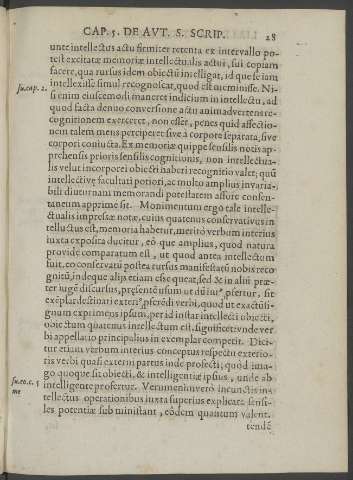 CAP. 5. DE AVT. S. SCRIP. 28
unte intellectus actu firmiter retenta ex intervallo po-
test excitatæ memoriæ intellectualis actui, sui copiam
facere, qua rursus idem obiectū intelligat, id que se iam
su. cap. 2.
intellexisse simul recognoscat, quod est meminisse. Ni-
si enim eiuscemodi maneret indicium in intellectu, ad
quod facta denuo conversione actu animadvertens re-
cognitionem exerceret, non esset, penes quid affectio-
nem talem mens perciperet sive à corpore separata, sive
corpori coniucta. Ex memoriæ quippe sensilis notis ap-
prehensis prioris sensilis cognitionis, non intellectua-
lis velut incorporei obiecti haberi recognitio valet; quū
intellectivę facultati potiori, ac multo amplius invaria-
bili diuturnani memorandi potestatem assure consen-
taneum apprime sit. Monimentum ergo tale intelle-
ctualis impressæ notæ, cuius quatenus conservativus in
tellectus est, memoria habetur, merito verbum interius
iuxta exposita ducitur, eò que amplius, quod natura
provide comparatum est, ut quod antea intellectum
fuit, eo conservatū postea rursus manifestatū nobis reco
gnitū, indeque alijs etiam esse queat, sed & in alui præ-
ter iugē discursus,
exēplar destinari
gnum exprimens ipsum, per id instar intellecti obiecti,
obiectum quatenus intellectum est, significet: unde ver
bi appellatio principalius in exemplar competit. Dici-
tur etiam verbum interius conceptus respectu exterio-
ris verbi quasi externi partus inde profecti; quòd ima-
go quoque sit obiecti, & intelligentiæ ipsius, unde ab
su. eo. c. §
me
intelligente profertur. Verumenimvero in cunctis in-
tellectus operationibus iuxta superius explicata sensi-
les potentiæ sub ministrant, eòdem quantum valent.
tendē